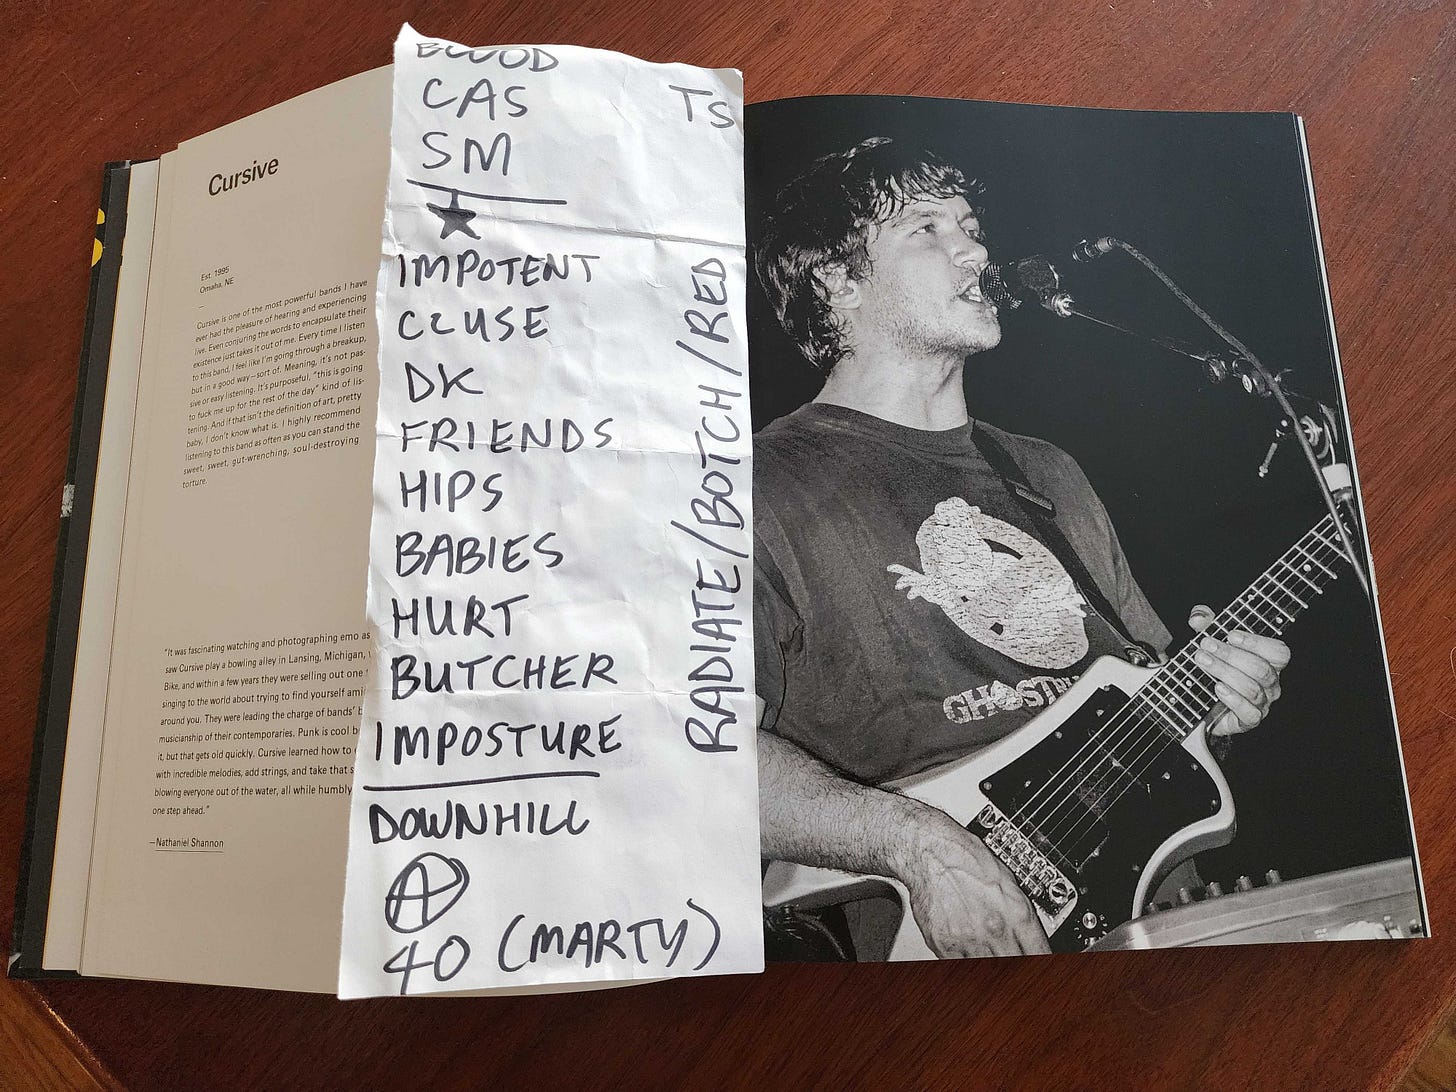 Cursive
Est. 1995
Omaha, NE
—
Cursive is one of the most powerful bands I have
ever had the pleasure of hearing and experiencing
live. Even conjuring the words to encapsulate their
existence just takes it out of me. Every time I listen
to this band, I feel like I'm going through a breakup,
but in a good way—sort of. Meaning, it's not pas-
sive or easy listening. It's purposeful, "this is going
to fuck me up for the rest of the day" kind of lis-
tening. And if that isn't the definition of art, pretty
baby, I don't know what is. I highly recommend
listening to this band as often as you can stand the
sweet, sweet, gut-wrenching, soul-destroying
torture.
"It was fascinating watching and photographing emo as
saw Cursive play a bowling alley in Lansing, Michigan,
Bike, and within a few years they were selling out one
singing to the world about trying to find yourself ami
around you. They were leading the charge of bands'
musicianship of their contemporaries. Punk is cool
it, but that gets old quickly. Cursive learned how to
with incredible melodies, add strings, and take that
blowing everyone out of the water, all while humbly
one step ahead."
—Nathaniel Shannon
BLOOD
CAS
SM
IMPOTENT
CLUSE
DK
FRIENDS
HIPS
BABIES
HURT
BUTCHER
IMPOSTURE
DOWNHILL
A
40 (MARTY)
TS
RADIATE/BOTCH/RED
GHOSTBU